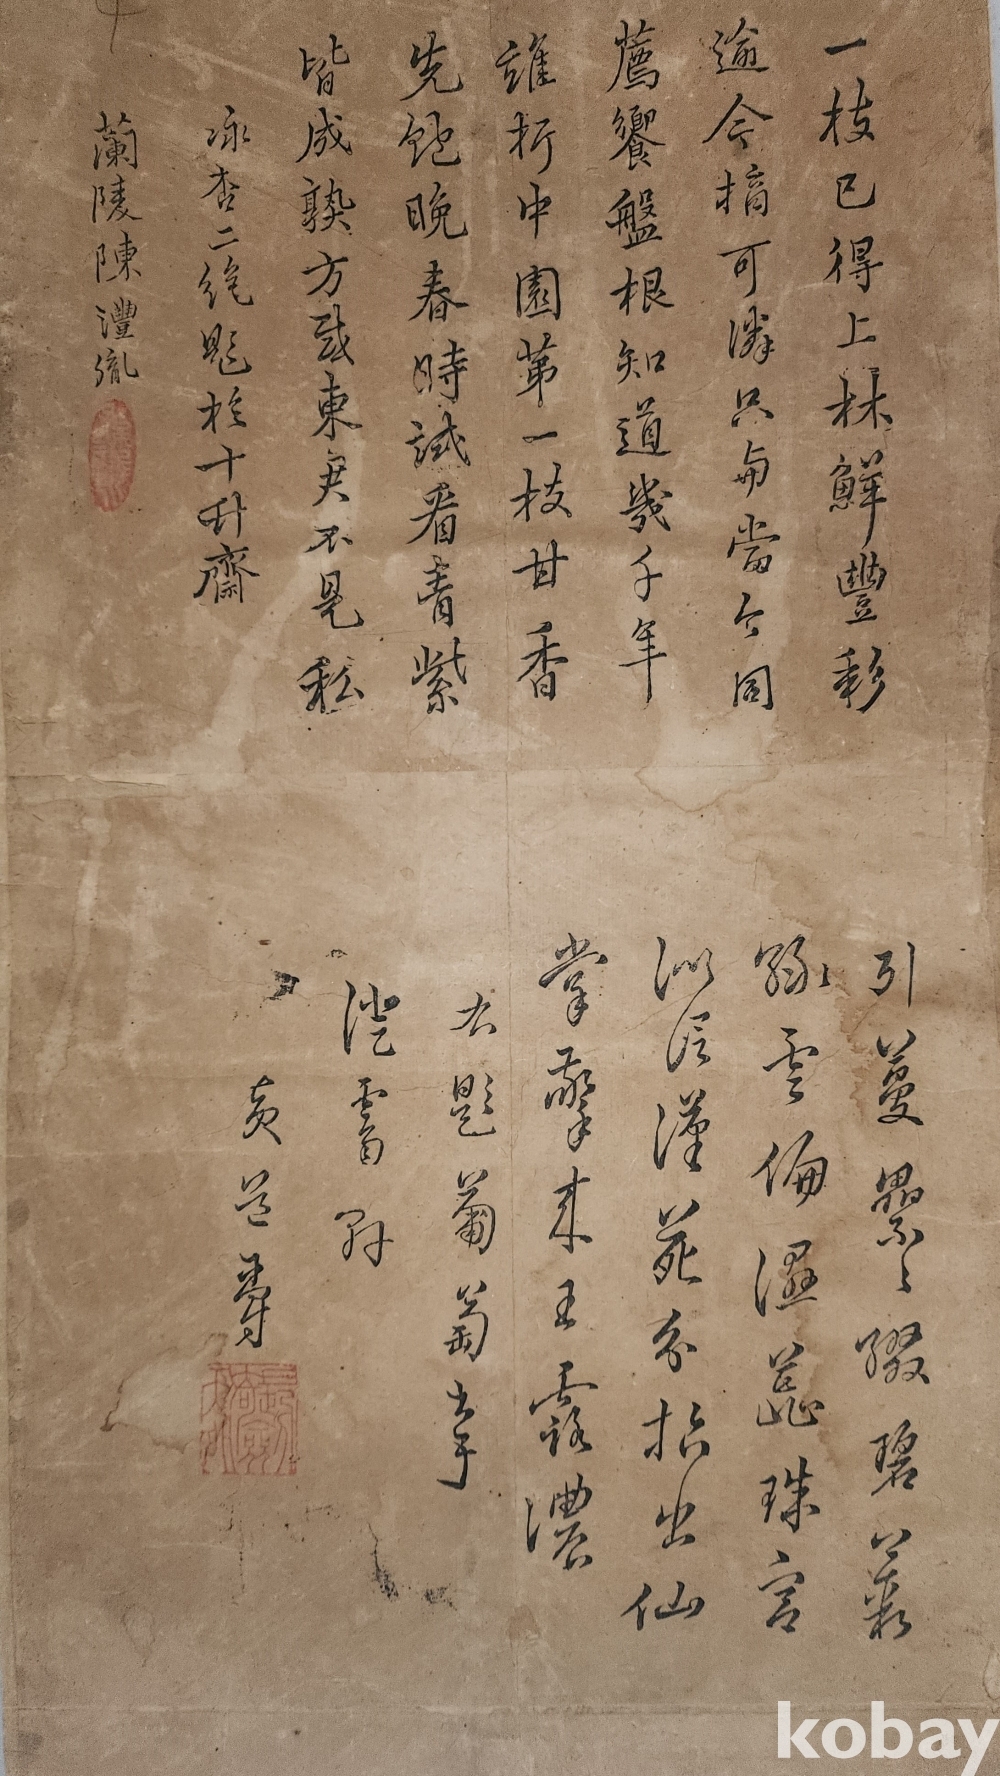 一枝已得上林鮮豐彩
逾今摘可憐只為當今同
薦饗盤根知道幾千年
誰折中園第一枝甘香
先飽晚春時試看青紫
皆成斅方或東君不是私
詠杏二絕題於十升齋
蘭陵陳澧胤
引蔓纍〻綴碧叢
雲偏濕蕊珠宮
漢苑分招出仙
掌擎來玉露濃
右題葡萄
澄雪
黃道
kobay